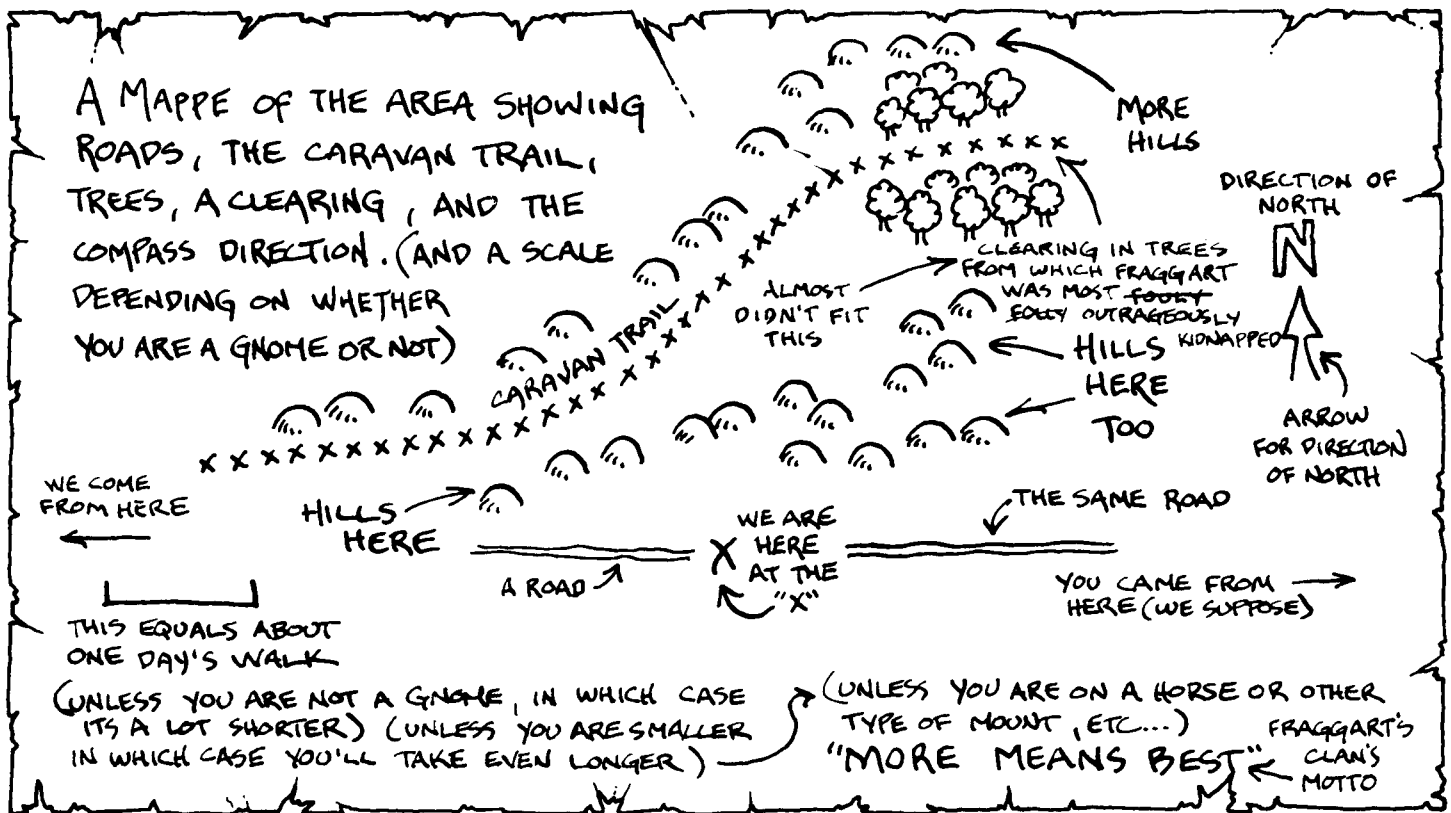 A MAPPE OF THE AREA SHOWING
ROADS, THE CARAVAN TRAIL,
TREES, A CLEARING, AND THE
COMPASS DIRECTION. (AND A SCALE
DEPENDING ON WHETHER
YOU ARE A GNOME OR NOT)
MORE
HILLS
DIRECTION OF
NORTH
N
CLEARING IN TREES
FROM WHICH FRAGGART
WAS MOST FOULY
FOLLY OUTRAGEOUSLY
KIDNAPPED
ALMOST
DIDN'T FIT
THIS
CARAVAN TRAIL
HILLS
HERE
TOO
ARROW
FOR DIRECTION
OF NORTH
WE COME
FROM HERE
HILLS
HERE
WE ARE
HERE
AT THE
"X"
X
THE SAME ROAD
A ROAD
YOU CAME FROM
HERE (WE SUPPOSE)
THIS EQUALS ABOUT
ONE DAY'S WALK
(UNLESS YOU ARE NOT A GNOME, IN WHICH CASE
ITS A LOT SHORTER) (UNLESS YOU ARE SMALLER
IN WHICH CASE YOU'LL TAKE EVEN LONGER)
(UNLESS YOU ARE ON A HORSE OR OTHER
TYPE OF MOUNT, ETC...)
"MORE MEANS BEST"
FRAGGART'S
CLAN'S
MOTTO